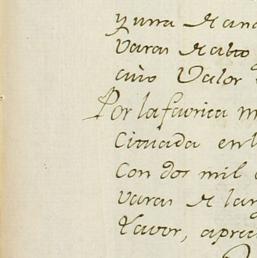 y una
varas de alto
cuio Valor
Por la favrica
Cituada en
Con dos mil
varas de
Lavor, apre